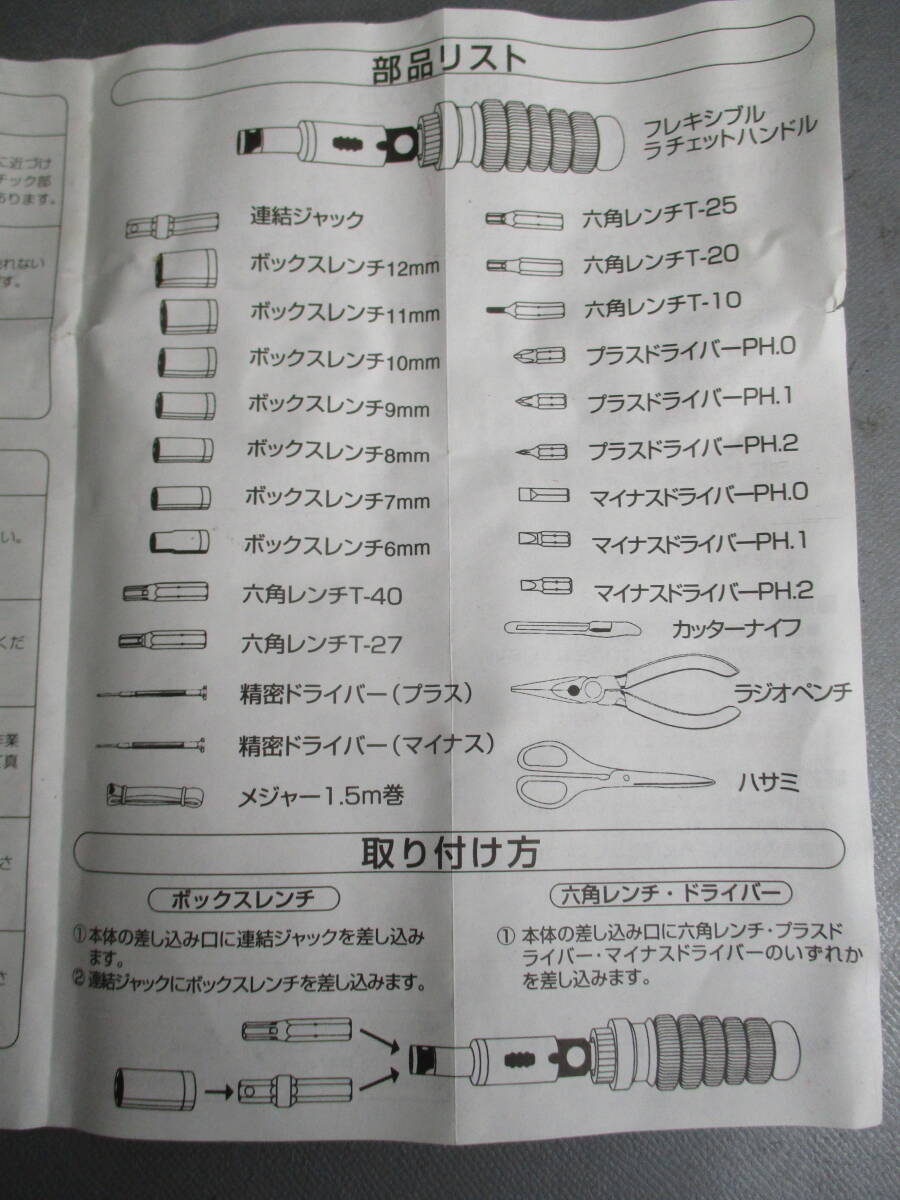 に近づけ
チック部
あります。
れない
す。
い。
くだ
作業
真
さ
さ
部品リスト
フレキシブル
ラチェットハンドル
連結ジャック
ボックスレンチ12mm
ボックスレンチ11mm
ボックスレンチ10mm
ボックスレンチ9mm
ボックスレンチ8mm
ボックスレンチ7mm
ボックスレンチ6mm
六角レンチT-40
六角レンチT-27
精密ドライバー(プラス)
精密ドライバー(マイナス)
メジャー1.5m巻
六角レンチT-25
六角レンチT-20
六角レンチT-10
プラスドライバーPH.0
プラスドライバーPH.1
プラスドライバーPH.2
マイナスドライバーPH.0
マイナスドライバーPH.1
マイナスドライバーPH.2
カッターナイフ
ラジオペンチ
ハサミ
取り付け方
ボックスレンチ
①本体の差し込み口に連結ジャックを差し込み
ます。
②連結ジャックにボックスレンチを差し込みます。
六角レンチ・ドライバー
① 本体の差し込み口に六角レンチ・プラスド
ライバー・マイナスドライバーのいずれか
を差し込みます。